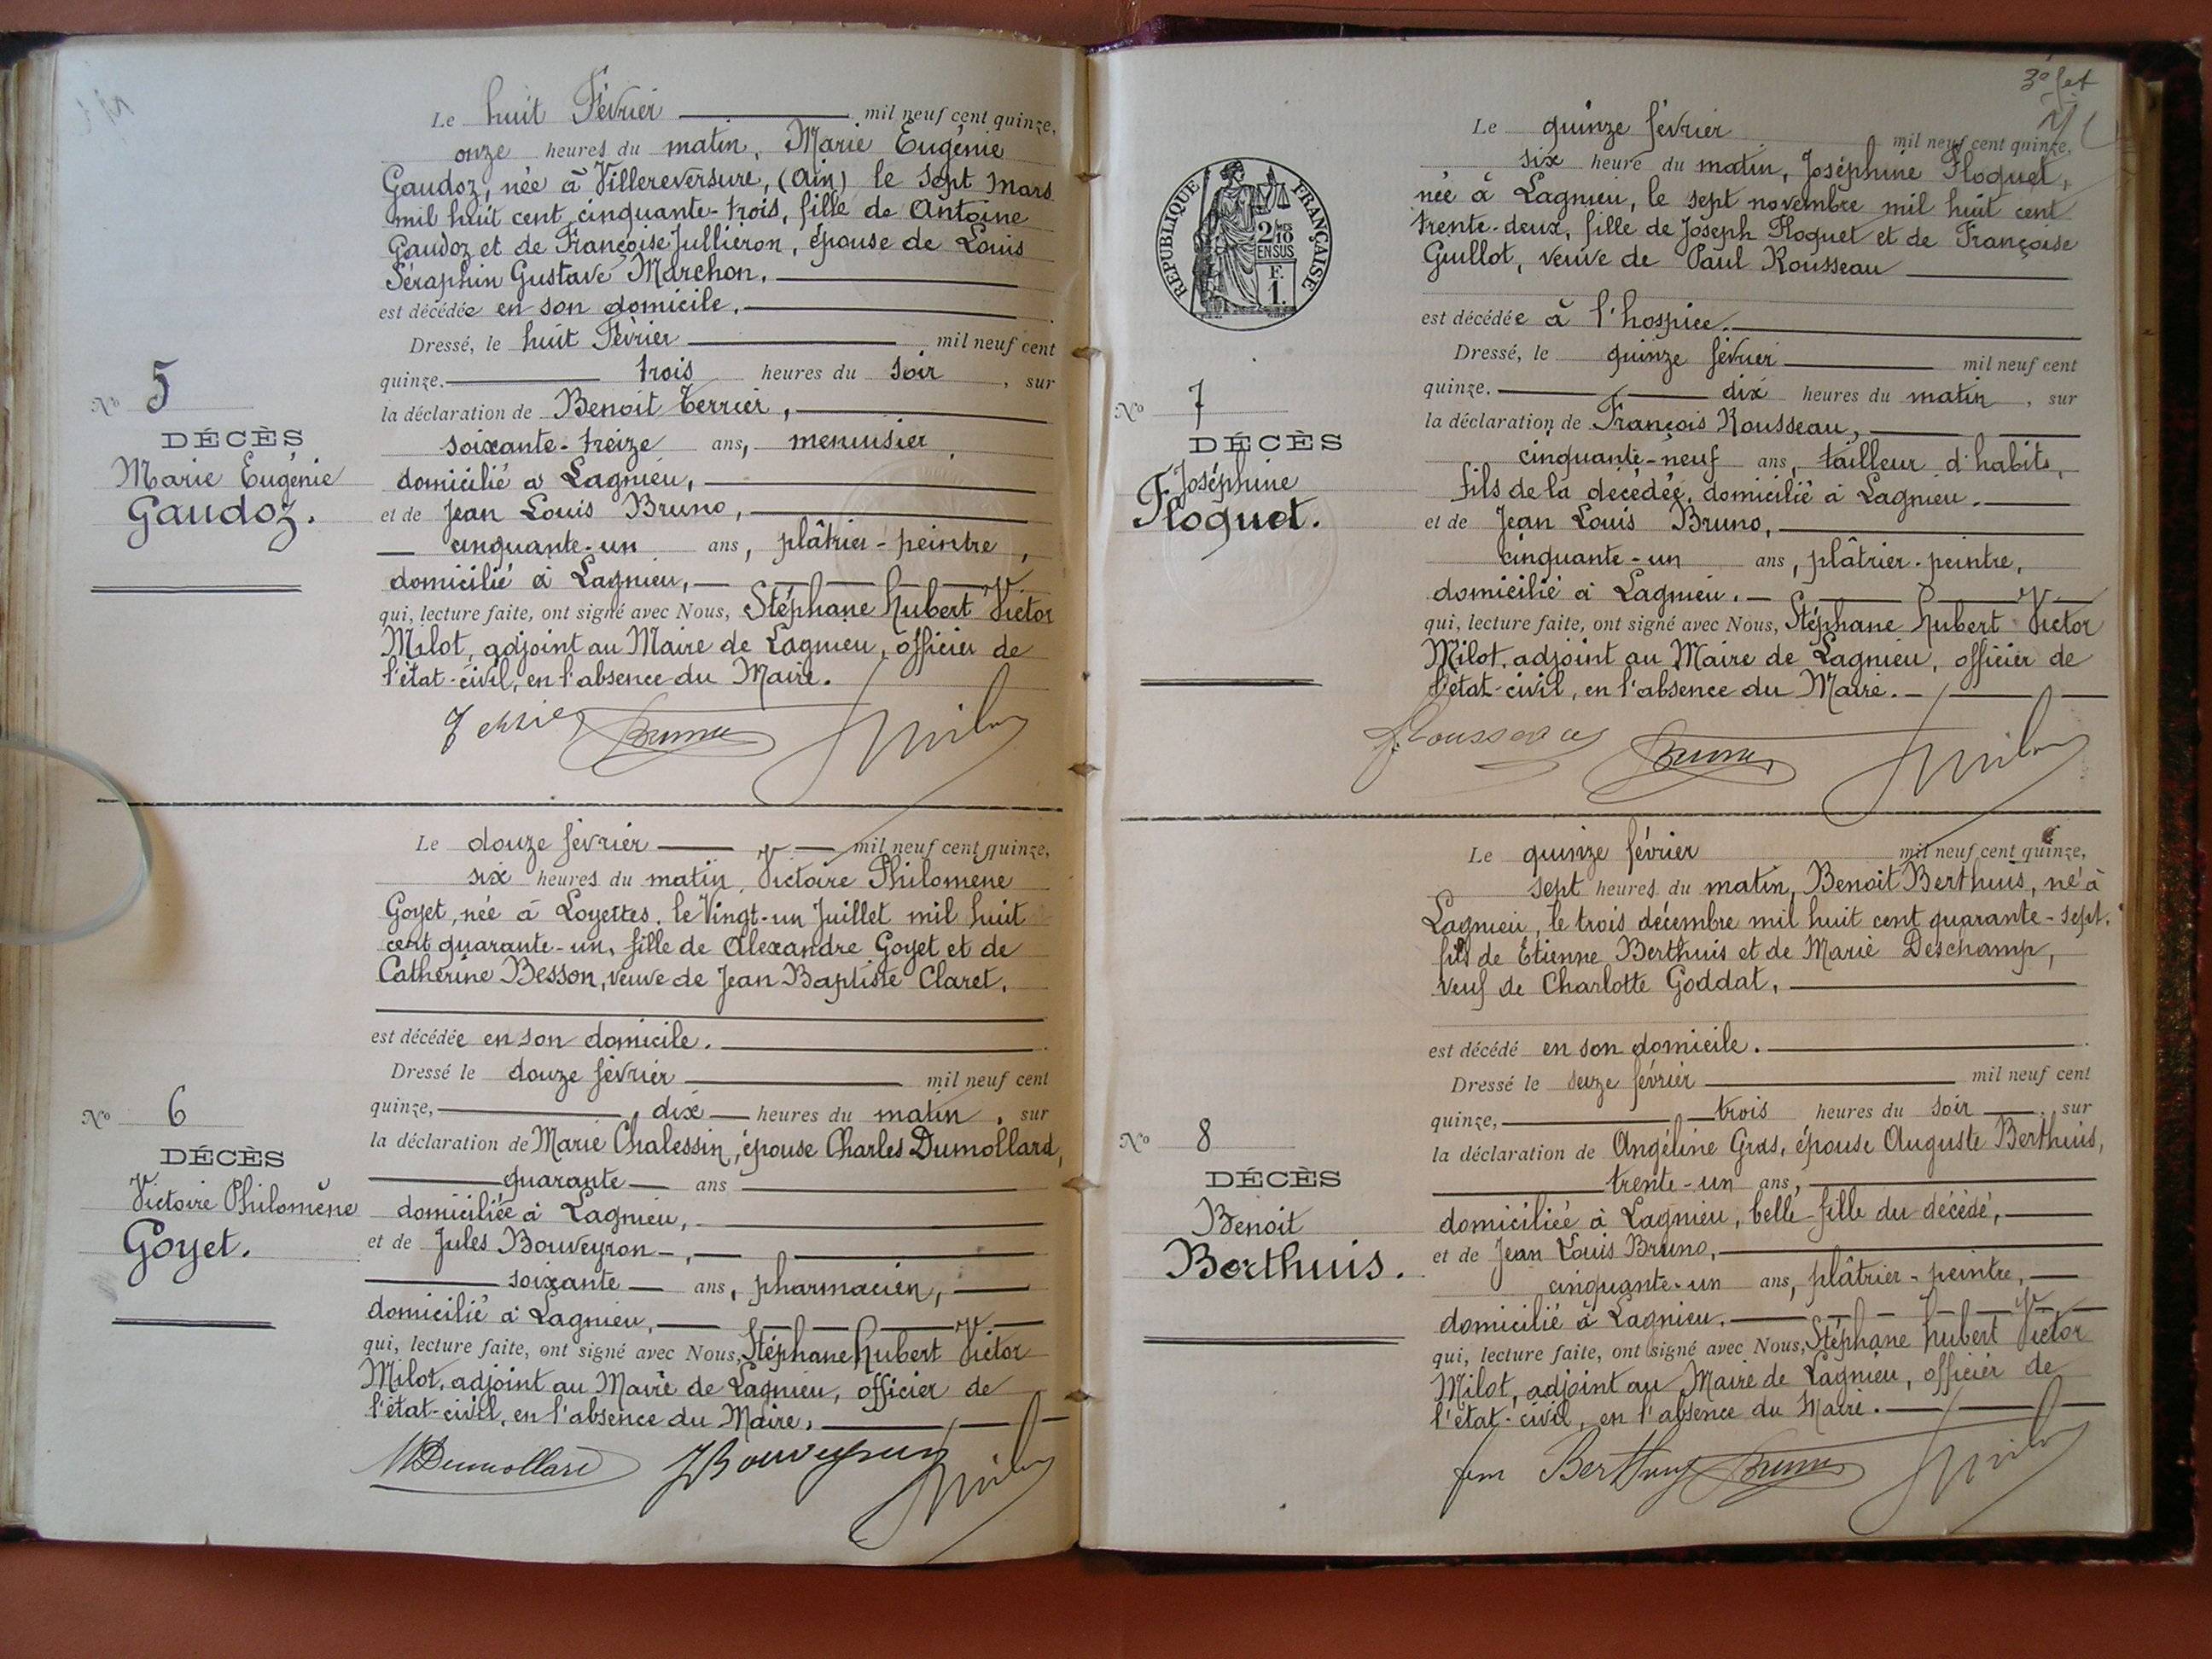 Le huit Février mil neuf cent quinze,
onze heures du matin, Marie Eugénie
Gaudoz, née à Villereversure, (Ain) le sept mars
mil huit cent cinquante-trois, fille de Antoine
Gaudoz et de Françoise Julliéron, épouse de Louis
Séraphin Gustave Marchon.
est décédée en son domicile.
Dressé, le huit Février mil neuf cent
quinze. trois heures du soir, sur
la déclaration de Benoit Terrier,
soixante-treize ans, menuisier,
domicilié à Lagnieu,
et de Jean Louis Bruno,
cinquante-un ans, plâtrier-peintre,
domicilié à Lagnieu,
qui, lecture faite, ont signé avec Nous, Stéphane Hubert Victor
Milot, adjoint au Maire de Lagnieu, officier de
l'état-civil, en l'absence du Maire.
Bruno
Nº 5
DÉCÈS
Marie Eugénie
Gaudoz.
Le douze février mil neuf cent quinze,
six heures du matin, Victoire Philomène
Goyet, née à Loyettes, le Vingt-un Juillet mil huit
cent quarante-un, fille de Alexandre Goyet et de
Catherine Besson, veuve de Jean Baptiste Claret,
est décédée en son domicile.
Dressé le douze février mil neuf cent
quinze, dix heures du matin, sur
la déclaration de Marie Chalessin, épouse Charles Dumollard,
quarante ans
domiciliée à Lagnieu,
et de Jules Bouveyron,
soixante ans, pharmacien,
domicilié à Lagnieu,
qui, lecture faite, ont signé avec Nous, Stéphane Hubert Victor
Milot, adjoint au Maire de Lagnieu, officier de
l'état-civil, en l'absence du Maire,
MDumollard JBouveyron Milot
Nº 6
DÉCÈS
Victoire Philomène
Goyet.
3e fet
RÉPUBLIQUE FRANÇAISE
2/10
EN SUS
F.
1.
Le quinze février mil neuf cent quinze,
six heure du matin, Joséphine Floquet,
née à Lagnieu, le sept novembre mil huit cent
trente-deux, fille de Joseph Floquet et de Françoise
Guillot, veuve de Paul Rousseau
est décédée à l'hospice.
Dressé, le quinze février mil neuf cent
quinze. dix heures du matin, sur
la déclaration de François Rousseau,
cinquante-neuf ans, tailleur d'habits,
fils de la décédée, domicilié à Lagnieu.
et de Jean Louis Bruno,
cinquante-un ans, plâtrier-peintre,
domicilié à Lagnieu.
qui, lecture faite, ont signé avec Nous, Stéphane Hubert Victor
Milot, adjoint au Maire de Lagnieu, officier de
l'état-civil, en l'absence du Maire.
f. Rousseau Bruno Milot
Nº 7
DÉCÈS
Joséphine
Floquet.
Le quinze février mil neuf cent quinze,
sept heures du matin, Benoit Berthuis, né à
Lagnieu, le trois décembre mil huit cent quarante-sept,
fils de Etienne Berthuis et de Marie Deschamp,
veuf de Charlotte Goddat,
est décédé en son domicile.
Dressé le seize février mil neuf cent
quinze, trois heures du soir, sur
la déclaration de Angéline Gras, épouse Auguste Berthuis,
trente-un ans,
domiciliée à Lagnieu, belle-fille du décédé,
et de Jean Louis Bruno,
cinquante-un ans, plâtrier-peintre,
domicilié à Lagnieu.
qui, lecture faite, ont signé avec Nous, Stéphane Hubert Victor
Milot, adjoint au Maire de Lagnieu, officier de
l'état-civil, en l'absence du Maire.
fem Berthuy Bruno Milot
Nº 8
DÉCÈS
Benoit
Berthuis.